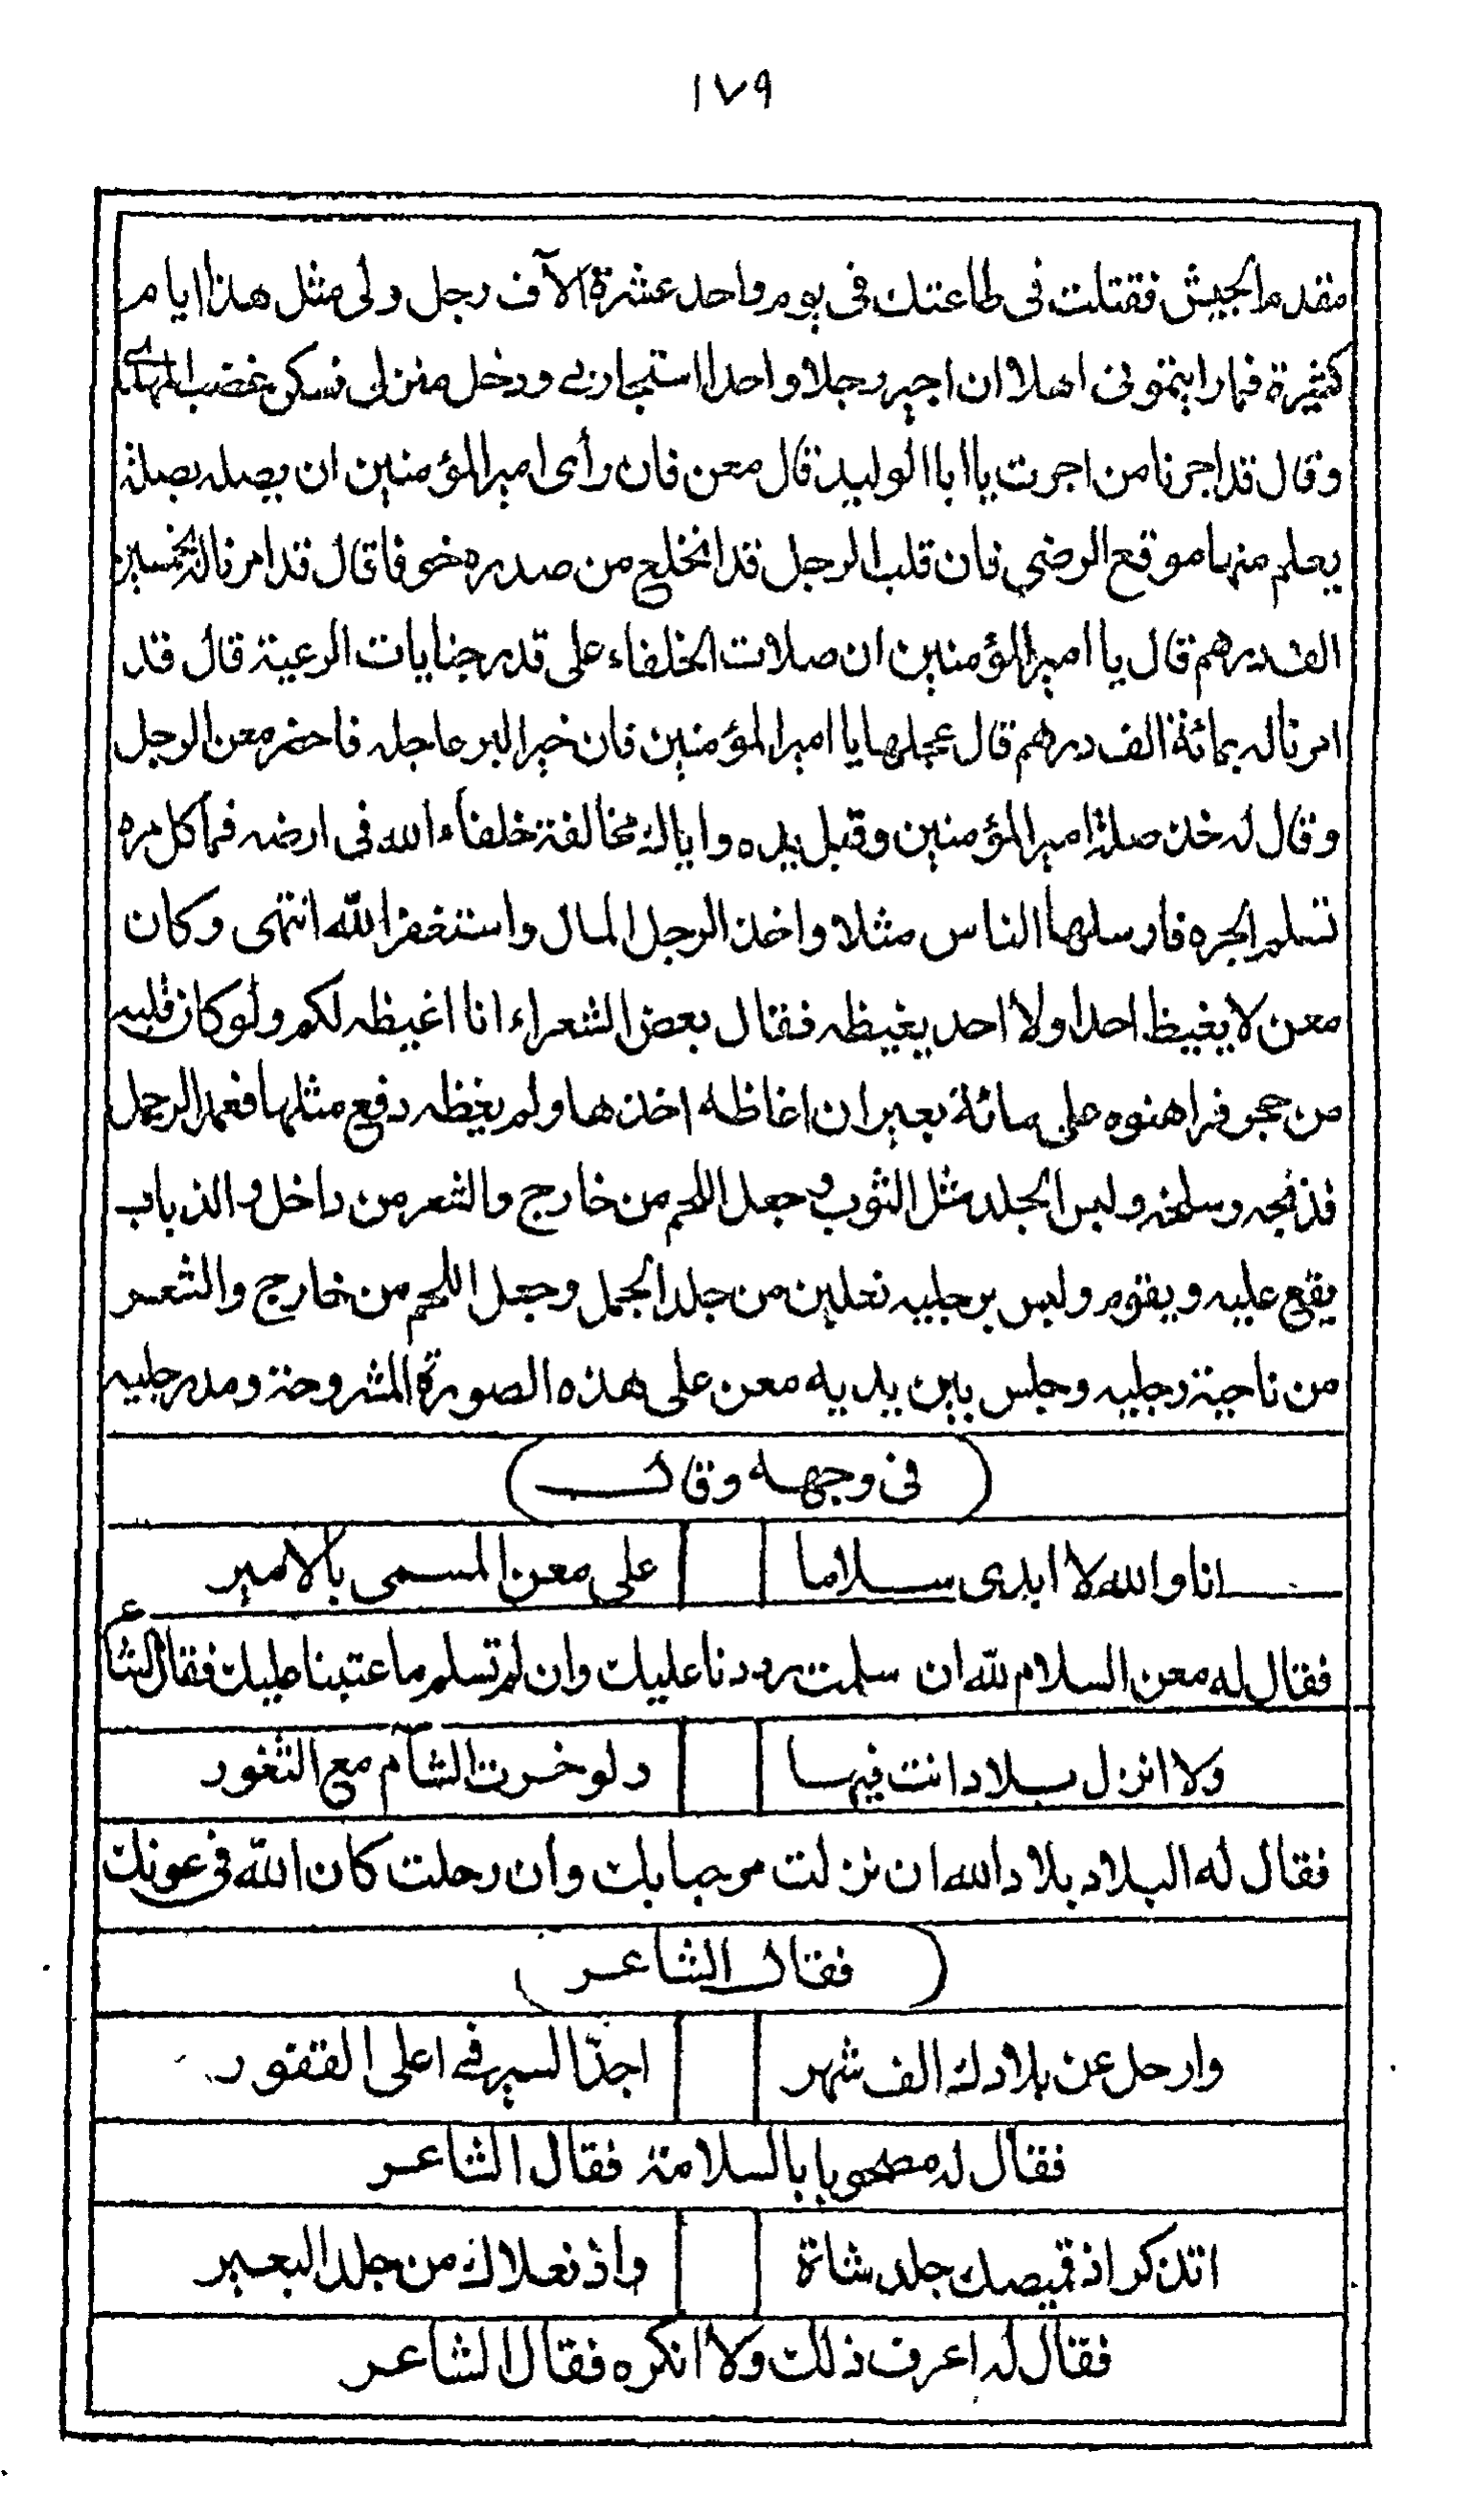 ١٧٩
مقدم الجيش فقتلت فى طاعتك فى يوم واحد عشرة آلاف رجل ولى مثل هذا ايام
كثيرة فما رايتمونى اهلا ان اجير رجلا واحدا استجار بى ودخل منزلى فسكن غضب المهدى
وقال قد اجرنا من اجرت يا ابا الوليد قال معن فان رأى امير المؤمنين ان يصله بصلة
يعلم منها موقع الرضى فان قلب الرجل قد انخلع من صدره خوفا قال قد امرنا له بخمسين
الف درهم قال يا امير المؤمنين ان صلات الخلفاء على قدر جنايات الرعية قال قد
امرنا له بمائة الف درهم قال عجلها يا امير المؤمنين فان خير البر عاجله فاحضر معن الرجل
وقال له خذ صلة امير المؤمنين وقبل يده واياك مخالفة خلفاء الله فى ارضه فما كل مره
تسلم الجره فارسلها الناس مثلا واخذ الرجل المال واستغفر الله انتهى وكان
معن لا يغيظ احدا ولا احد يغيظه فقال بعض الشعراء انا اغيظه لكم ولو كان قلبه
من حجر فراهنوه على مائة بعير ان اغاظه اخذها ولم يغظه دفع مثلها فعمد الرجل
فذبحه وسلخه ولبس الجلد مثل الثوب وجعل اللحم من خارج والشعر من داخل والذباب
يقع عليه ويقوم ولبس برجليه نعلين من جلد الجمل وجعل اللحم من خارج والشعر
من ناحية رجليه وجلس بين يديه معن على هذه الصورة المشروحة ومد رجليه
(فى وجهه وقال)
انا والله لا ابدى سلاما على معن المسمى بالامير
فقال له معن السلام لله ان سلمت رددنا عليك وان لم تسلم ما عتبنا عليك فقال الشاعر
ولا انزل بلادا انت فيها ولو خرت الشآم مع الثغور
فقال له البلاد بلاد الله ان نزلت مرحبا بك وان رحلت كان الله فى عونك
(فقال الشاعر)
وارحل عن بلادك الف شهر اجدّ السير فى اعلى القفور
فقال له مصحوبا بالسلامة فقال الشاعر
اتذكر اذ قميصك جلد شاة واذ نعلاك من جلد البعير
فقال له اعرف ذلك ولا انكره فقال الشاعر